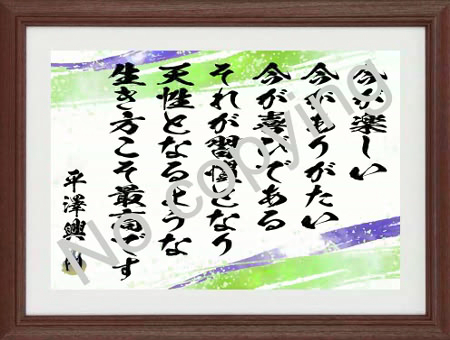 今が楽しい
今がありがたい
今が喜びである
それが習慣となり
天性となるような
生き方こそ最高です
平澤興
No copying